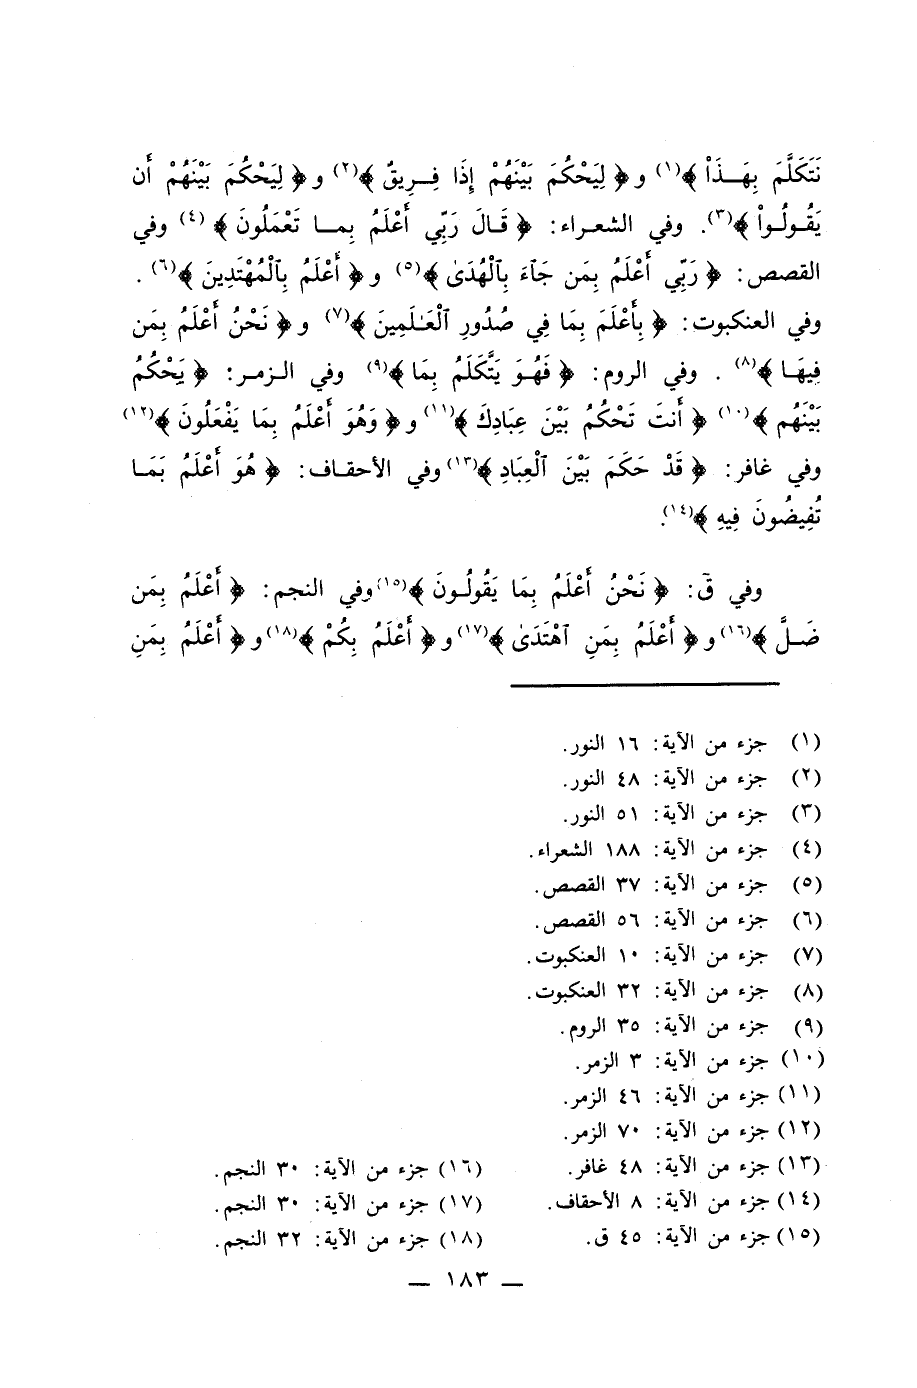 نَتَكَلَّمَ بِهَـٰذَاْ ﴾(١) و ﴿ لِيَحْكُمَ بَيْنَهُمْ إِذَا فَرِيقٌ ﴾(٢) و ﴿ لِيَحْكُمَ بَيْنَهُمْ أَن
يَقُولُواْ ﴾(٣). وفي الشعراء: ﴿ قَالَ رَبِّي أَعْلَمُ بِمَا تَعْمَلُونَ ﴾ (٤) وفي
القصص: ﴿ رَبِّي أَعْلَمُ بِمَن جَآءَ بِٱلْهُدَىٰ ﴾(٥) و ﴿ أَعْلَمُ بِٱلْمُهْتَدِينَ ﴾(٦) .
وفي العنكبوت: ﴿ بِأَعْلَمَ بِمَا فِي صُدُورِ ٱلْعَـٰلَمِينَ ﴾(٧) و ﴿ نَحْنُ أَعْلَمُ بِمَن
فِيهَا ﴾(٨) . وفي الروم: ﴿ فَهُوَ يَتَّكَلَّمُ بِمَا ﴾(٩) وفي الزمر: ﴿ يَحْكُمُ
بَيْنَهُم ﴾(١٠) ﴿ أَنتَ تَحْكُمُ بَيْنَ عِبَادِكَ ﴾(١١) و ﴿ وَهُوَ أَعْلَمُ بِمَا يَفْعَلُونَ ﴾(١٢)
وفي غافر: ﴿ قَدْ حَكَمَ بَيْنَ ٱلْعِبَادِ ﴾(١٣) وفي الأحقاف: ﴿ هُوَ أَعْلَمُ بَمَا
تُفِيضُونَ فِيهِ ﴾(١٤).
وفي قَ: ﴿ نَحْنُ أَعْلَمُ بِمَا يَقُولُونَ ﴾(١٥) وفي النجم: ﴿ أَعْلَمُ بِمَن
ضَلَّ ﴾(١٦) و ﴿ أَعْلَمُ بِمَنِ ٱهْتَدَىٰ ﴾(١٧) و ﴿ أَعْلَمُ بِكُمْ ﴾(١٨) و ﴿ أَعْلَمُ بِمَنِ
(١) جزء من الآية: ١٦ النور.
(٢) جزء من الآية: ٤٨ النور.
(٣) جزء من الآية: ٥١ النور.
(٤) جزء من الآية: ١٨٨ الشعراء.
(٥) جزء من الآية: ٣٧ القصص.
(٦) جزء من الآية: ٥٦ القصص.
(٧) جزء من الآية: ١٠ العنكبوت.
(٨) جزء من الآية: ٣٢ العنكبوت.
(٩) جزء من الآية: ٣٥ الروم.
(١٠) جزء من الآية: ٣ الزمر.
(١١) جزء من الآية: ٤٦ الزمر.
(١٢) جزء من الآية: ٧٠ الزمر.
(١٣) جزء من الآية: ٤٨ غافر.
(١٤) جزء من الآية: ٨ الأحقاف.
(١٥) جزء من الآية: ٤٥ ق.
(١٦) جزء من الآية: ٣٠ النجم.
(١٧) جزء من الآية: ٣٠ النجم.
(١٨) جزء من الآية: ٣٢ النجم.
— ١٨٣ —